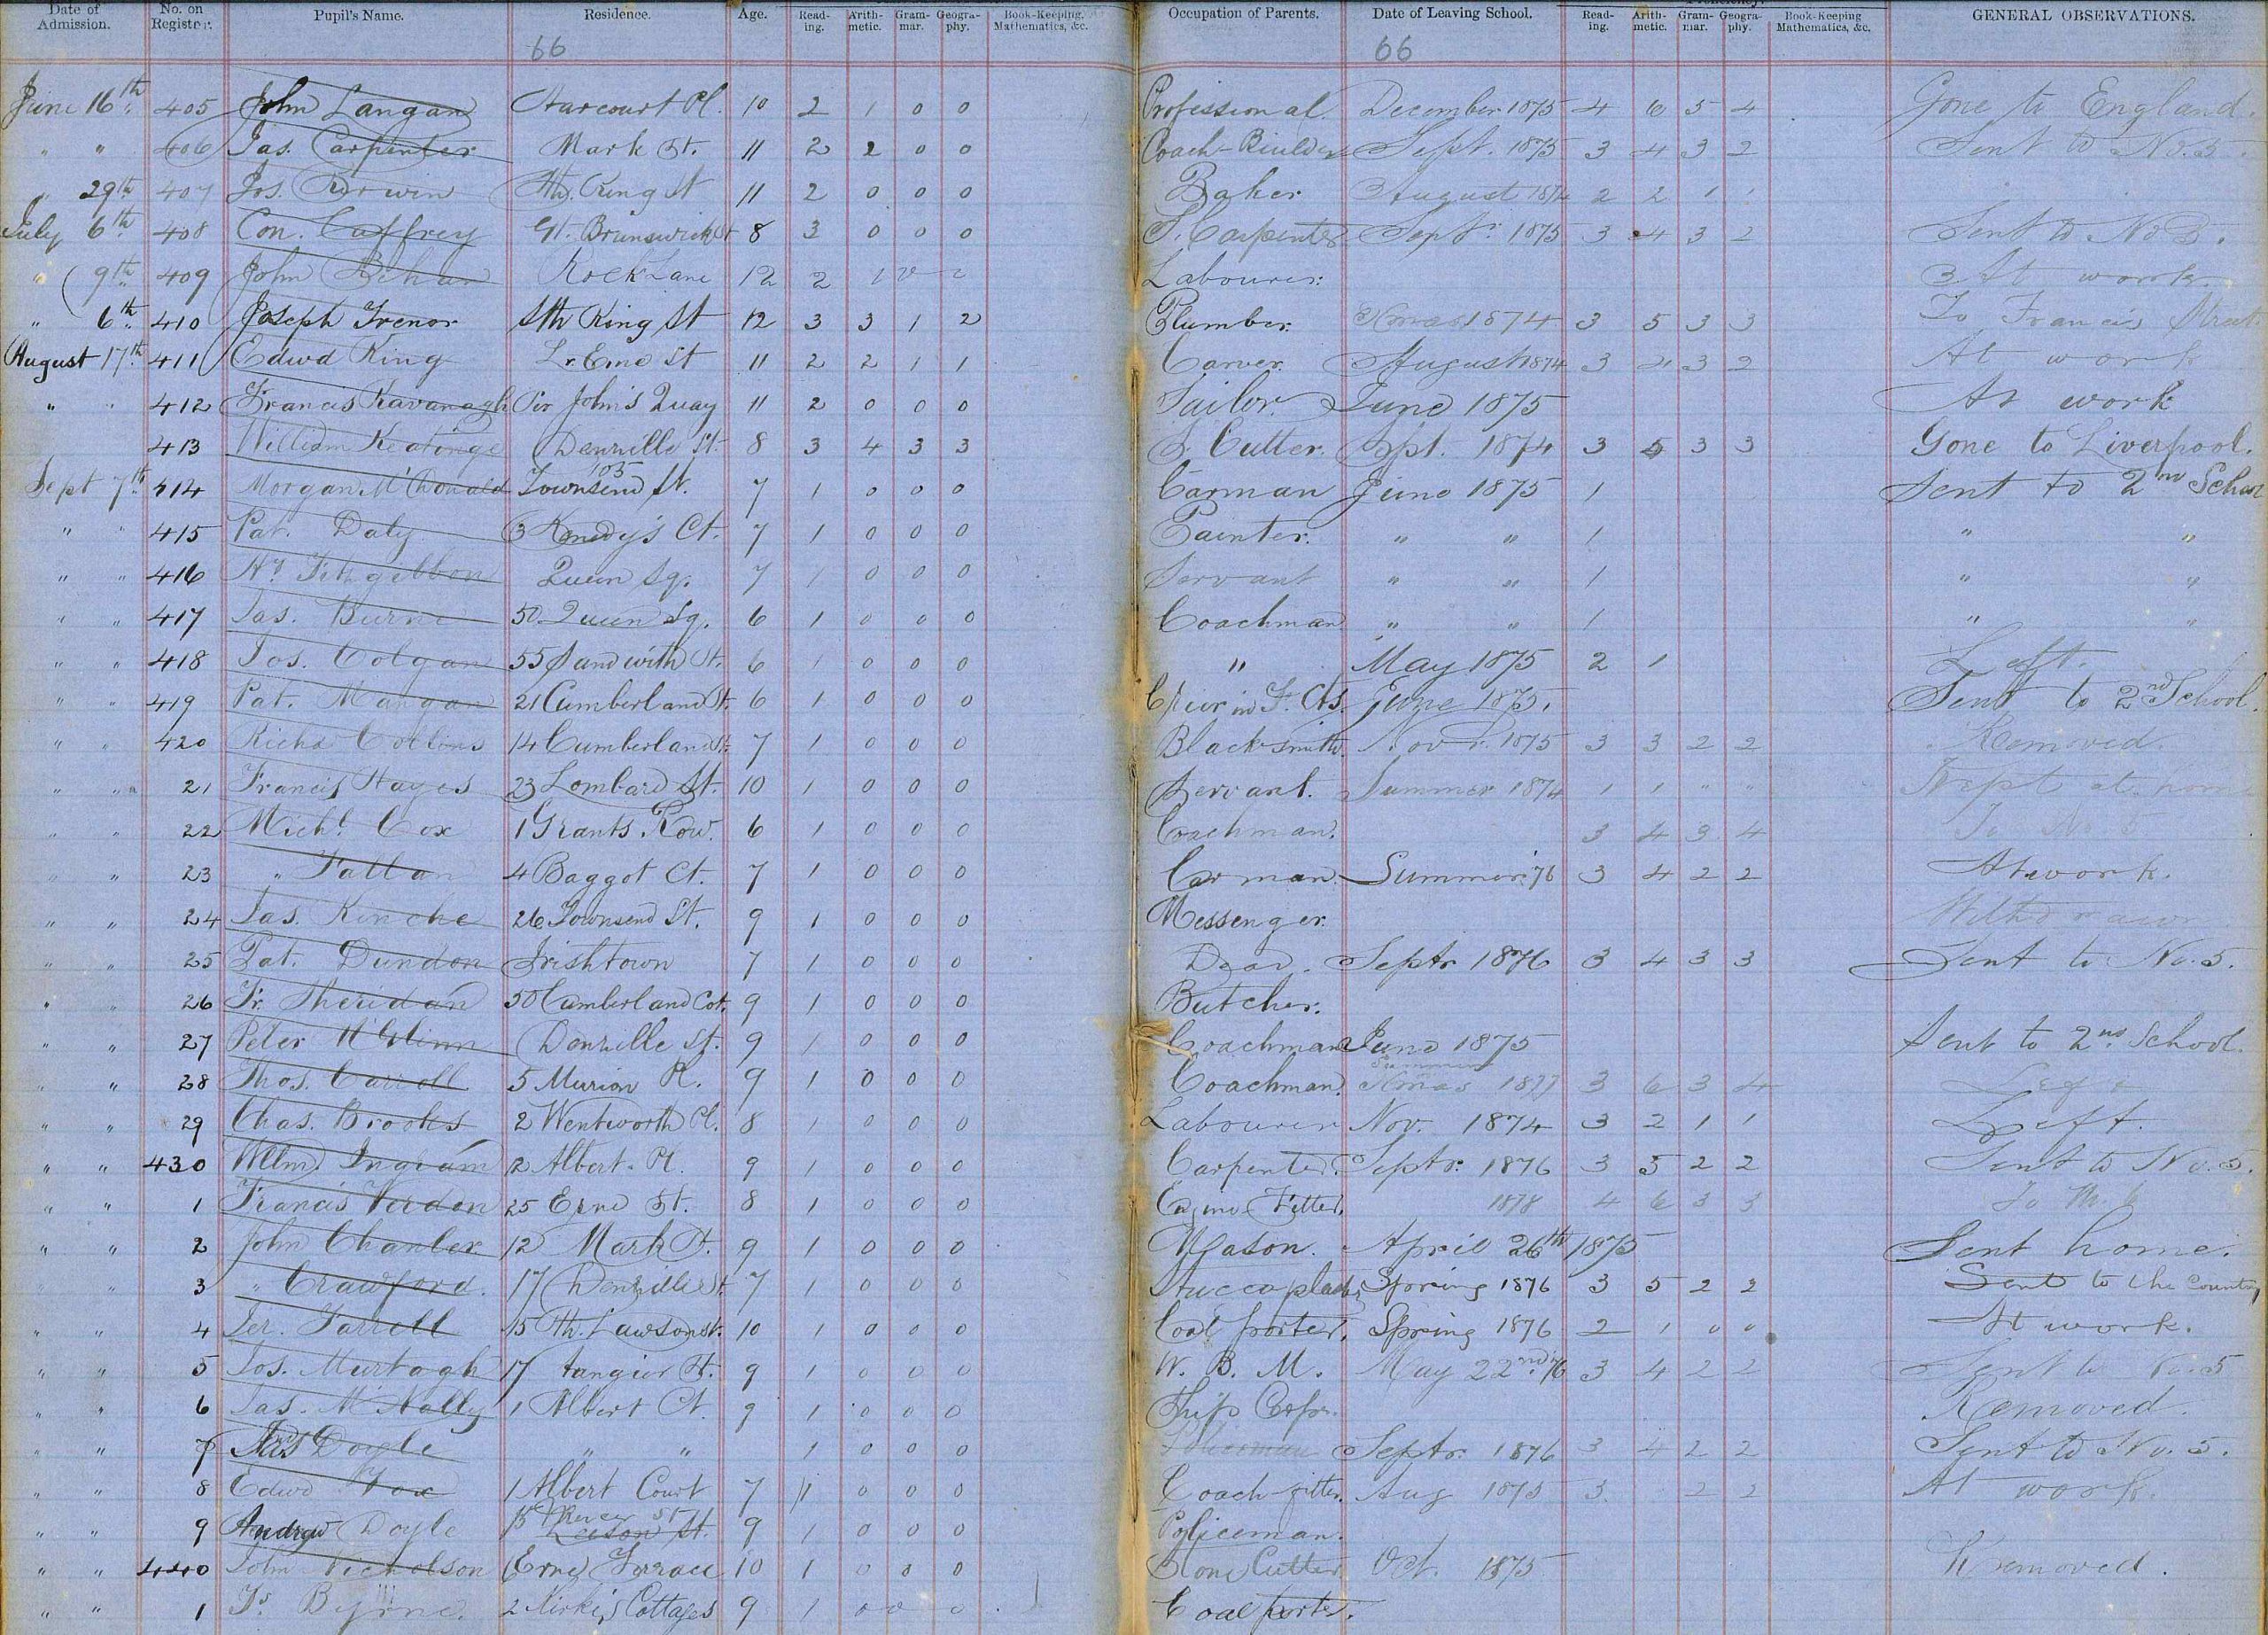 Date of Admission. No. on Register. Pupil's Name. Residence. Age. Reading. Arithmetic. Grammar. Geography. Book-Keeping, Mathematics, &c. Occupation of Parents. Date of Leaving School. Reading. Arithmetic. Grammar. Geography. Book-Keeping Mathematics, &c. GENERAL OBSERVATIONS.
66 66
June 16th 405 John Langan Harcourt Pl. 10 2 1 0 0 Professional. December 1875 4 6 5 4 Gone to England.
" " 406 Jas. Carpenter Mark St. 11 2 2 0 0 Coach-Builder Sept. 1875 3 4 3 2 Sent to No. 5.
" 29th 407 Jos. Sth. King St 11 2 0 0 0 Baker August 1874 2 2 1 1
July 6th 408 Con. Caffrey Gt. Brunswick St 8 3 0 0 0 S. Carpenter Septr. 1875 3 4 3 2 Sent to No 5.
" 9th 409 John Behan Rock Lane 12 2 1 0 0 Labourer. At work.
" 6th 410 Joseph Trenor Sth King St 12 3 3 1 2 Plumber. Xmas 1874 3 5 3 3 To Francis Street
August 17th 411 Edwd King Lr. Erne St 11 2 2 1 1 Carver. August 1874 3 4 3 2 At work
" " 412 Francis Kavanagh Sir John's Quay 11 2 0 0 0 Tailor. June 1875 At work
413 William Keatinge Denzille St. 8 3 4 3 3 S. Cutter. Sept. 1874 3 5 3 3 Gone to Liverpool.
Sept 7th 414 Morgan McDonald 105 Townsend St. 7 1 0 0 0 Carman June 1875 1 Sent to 2nd School
" " 415 Pat. Daly 3 Kennedy's Ct. 7 1 0 0 0 Painter. " " 1 " "
" " 416 Hy Fitzgibbon Queen Sq. 7 1 0 0 0 Servant " " 1 " "
" " 417 Jas. Burne 50 Queen Sq. 6 1 0 0 0 Coachman " " 1 " "
" " 418 Jos. Colgan 55 Sandwith St. 6 1 0 0 0 " May 1875 2 1 Left.
" " 419 Pat. Mangan 21 Cumberland St. 6 1 0 0 0 Crier in F. Cts. June 1875. Sent to 2nd School.
" " 420 Richd Collins 14 Cumberland St. 7 1 0 0 0 Blacksmith. Novr. 1875 3 3 2 2 Removed.
" " 21 Francis Hayes 23 Lombard St. 10 1 0 0 0 Servant. Summer 1874 1 1 " " Kept at home
" " 22 Michl. Cox 1 Grants Row. 6 1 0 0 0 Coachman. 3 4 3 4 To No. 5
" " 23 " Fallan 4 Baggot Ct. 7 1 0 0 0 Carman. Summer '76 3 4 2 2 At work.
" " 24 Jas. Kinche 26 Townsend St. 9 1 0 0 0 Messenger. Withdrawn
" " 25 Pat. Dundon Irishtown 7 1 0 0 0 Dead. Septr 1876 3 4 3 3 Sent to No. 5.
" " 26 Fr. Sheridan 50 Cumberland Cot. 9 1 0 0 0 Butcher.
" " 27 Peter McGlinn Denzille St. 9 1 0 0 0 Coachman June 1875 Sent to 2nd School.
" " 28 Thos. Carroll 5 Merion Pl. 9 1 0 0 0 Coachman. Summer Xmas 1877 3 6 3 4 Left
" " 29 Chas. Brooks 2 Wentworth Pl. 8 1 0 0 0 Labourer Nov. 1874 3 2 1 1 Left.
" " 430 Wllm. Ingram 12 Albert Pl. 9 1 0 0 0 Carpenter. Septr. 1876 3 5 2 2 Sent to No. 5.
" " 1 Francis Verdon 25 Erne St. 8 1 0 0 0 Engine Fitter. 1878 4 6 3 3
" " 2 John Chanler 12 Mark St. 9 1 0 0 0 Mason. April 26th 1875 Sent home.
" " 3 " Crawford. 17 Denzille St. 7 1 0 0 0 Spring 1876 3 5 2 2 Sent to the Country
" " 4 Jer. Farrell 15 Th. Lawson St. 10 1 0 0 0 Coal porter. Spring 1876 2 1 0 0 At work.
" " 5 Jos. Murtagh 17 Tangier St. 9 1 0 0 0 W. B. M. May 22nd 76 3 4 2 2 Sent to No. 5
" " 6 Jas. McNally 1 Albert Ct. 9 1 0 0 0 Ship Carpr. Removed.
" " 7 Doyle " " 1 0 0 0 Policeman Septr. 1876 3 4 2 2 Sent to No. 5.
" " 8 Edwd Fox 1 Albert Court 7 1 0 0 0 Coach fitter. Aug 1875 3 2 2 At work.
" " 9 Andrew Doyle 15 Mercer St Leeson St. 9 1 0 0 0 Policeman.
" " 440 John Nicholson Erne Terrace 10 1 0 0 0 Stone Cutter Oct. 1875 Removed.
" " 1 Js. Byrne. 2 Kirke's Cottages 9 1 0 0 0 Coal porter.